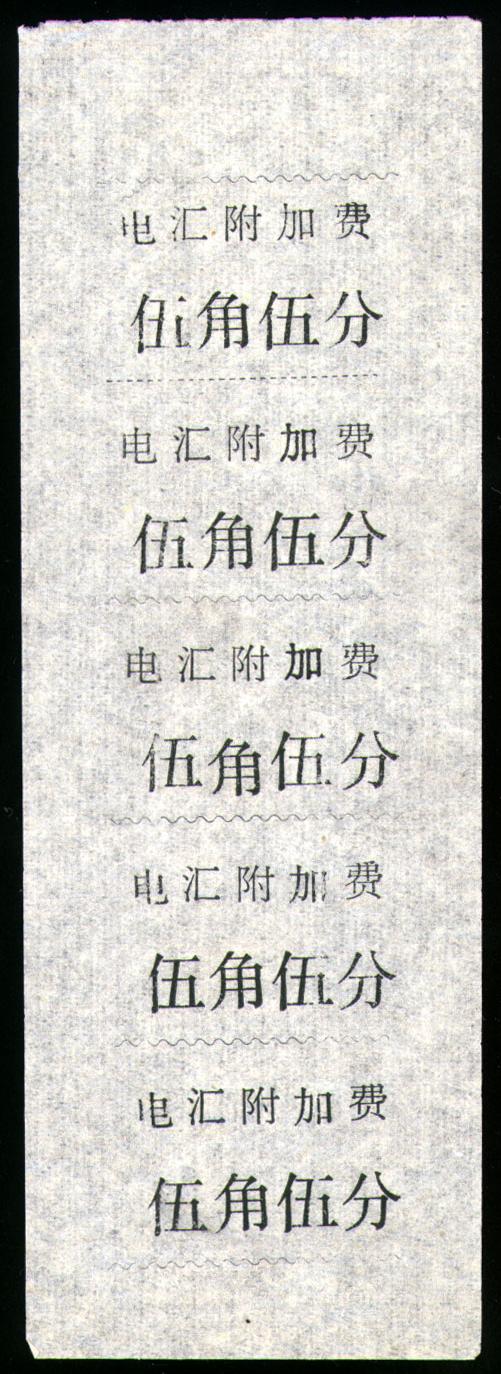 电汇附加费
伍角伍分
电汇附加费
伍角伍分
电汇附加费
伍角伍分
电汇附加费
伍角伍分
电汇附加费
伍角伍分